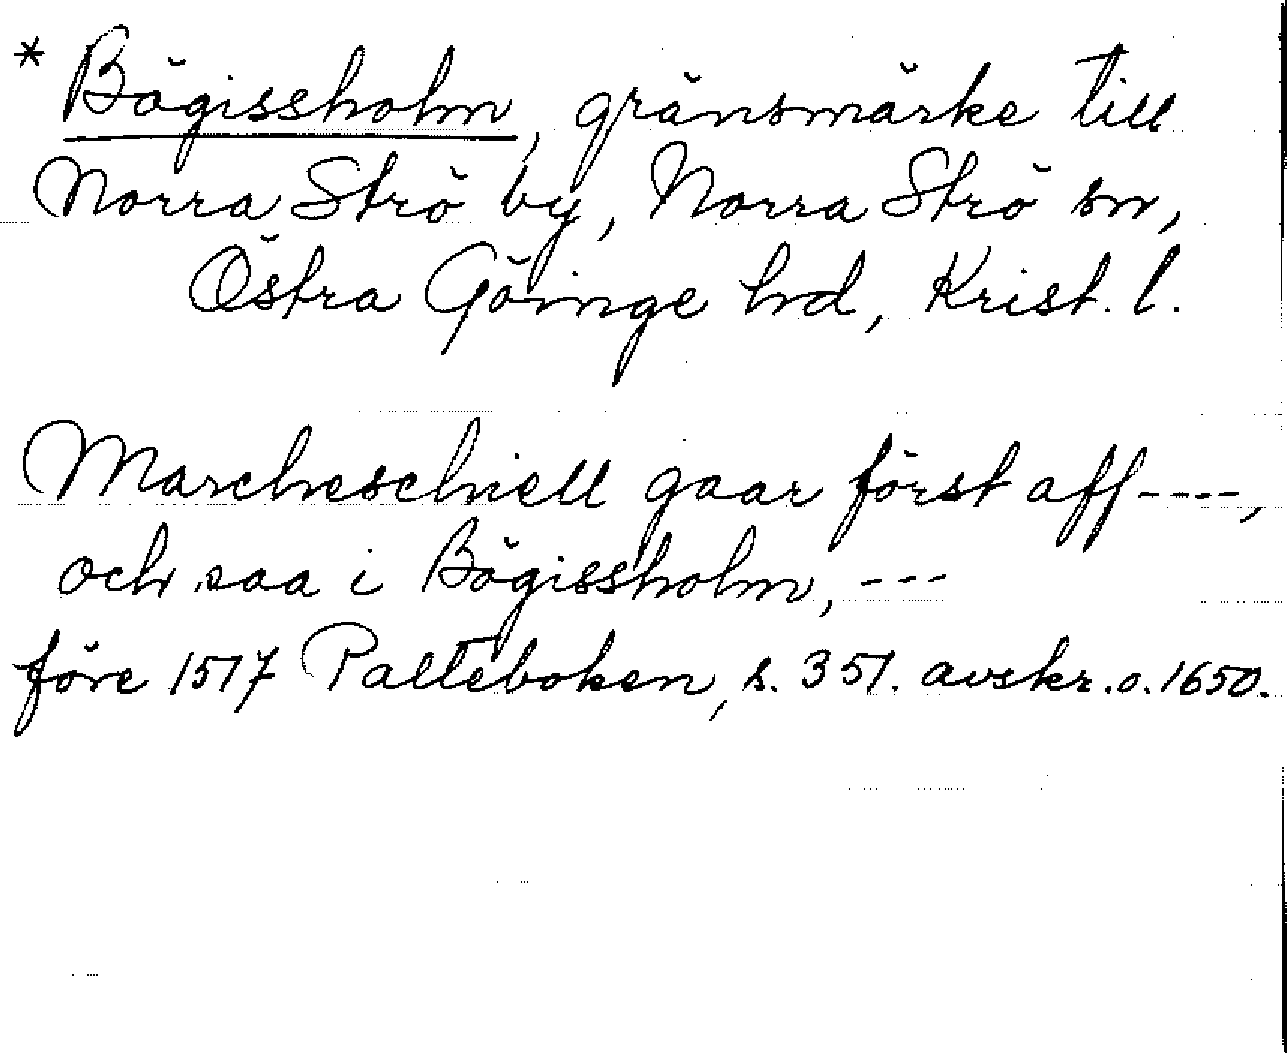 * Bögissholm, gränsmärke till
Norra Strö by, Norra Strö sn,
Östra Göinge hd, Krist. l.
Marcheschiell gaar först aff ----,
och saa i Bögissholm, ---
före 1517 Palteboken, s. 351. avskr. o. 1650.